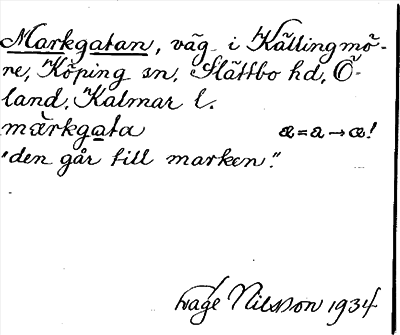 Markgatan, väg i Källingmö-
re, Köping sn, Slättbo hd, Ö-
land, Kalmar l.
märkgata a=a→a!
"den går till marken."
Nilsson 1934